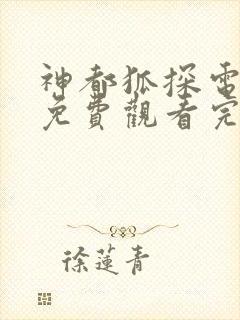 神都狐探電
免費觀看完
徐蓮青